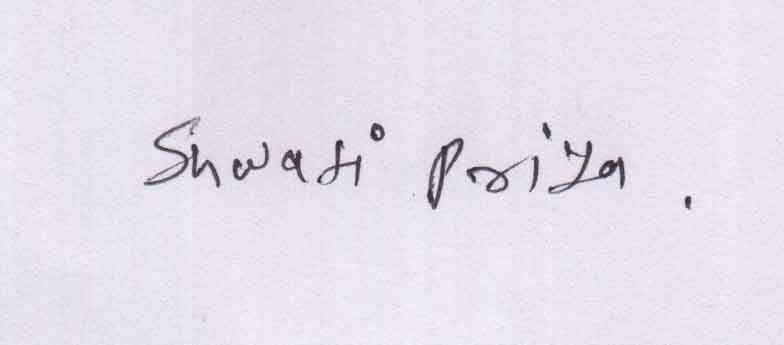 Shwati Priya.